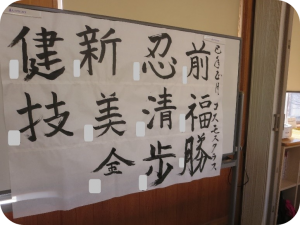 コスモスクラス
前福勝
忍清歩
新美金
健技